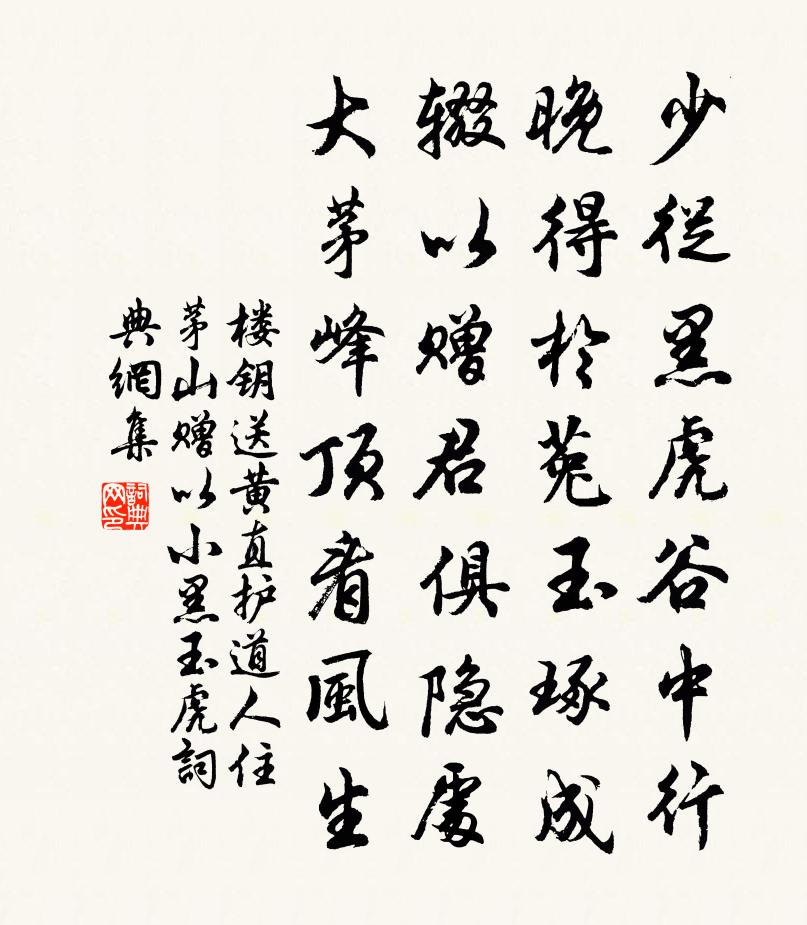 少從黑虎谷中行
晚得於菟玉琢成
辍以赠君俱隐處
大茅峰顶看風生
楼钥送黄直护道人住
茅山赠以小黑玉虎詞
典網集
詞典网印